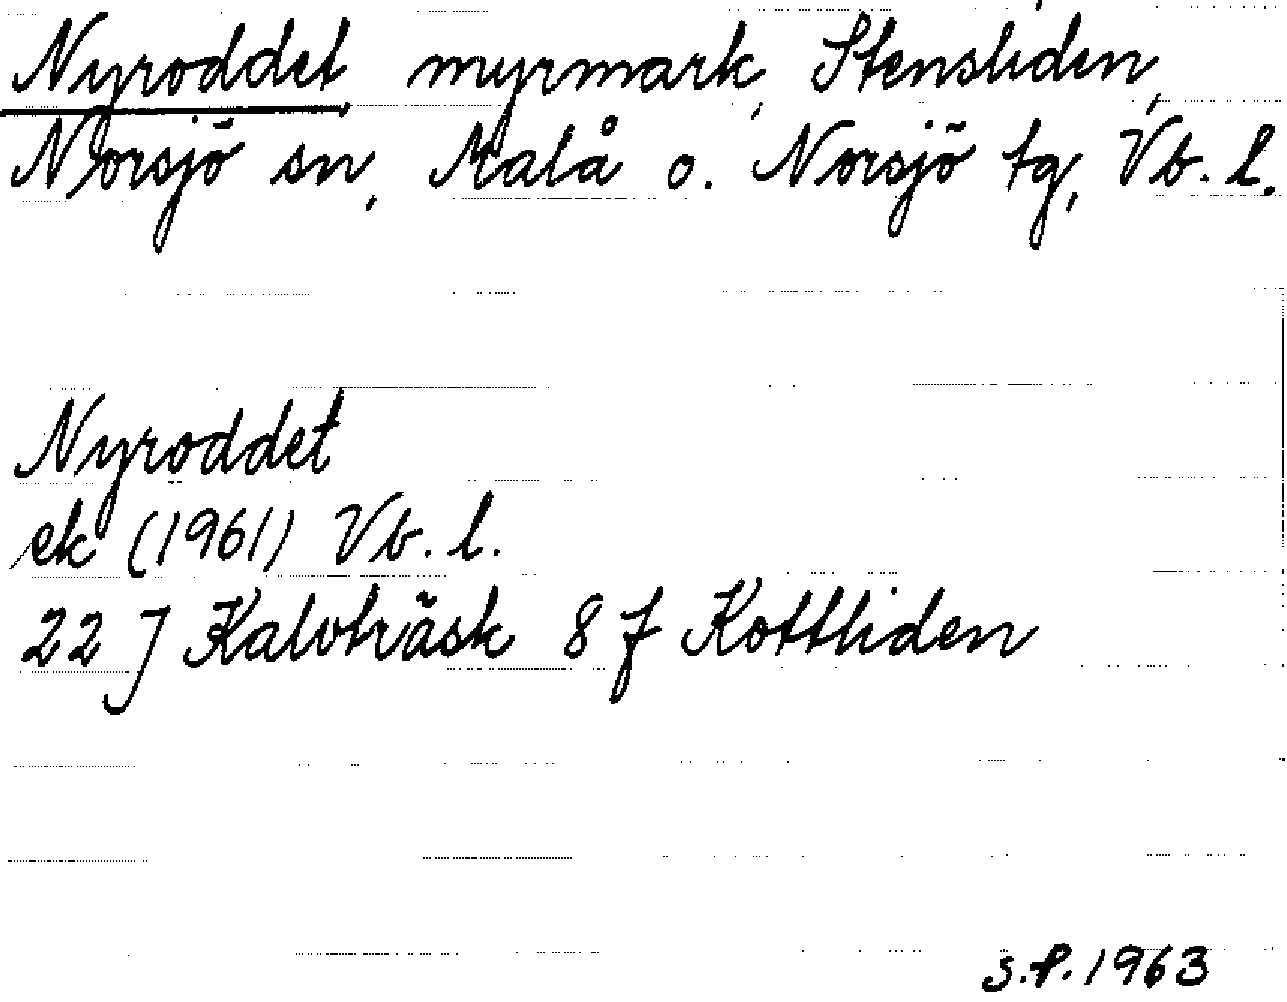 Nyroddet, myrmark, Stensliden,
Norsjö sn, Malå o. Norsjö tg, Vb. l.
Nyroddet
ek (1961) Vb. l.
22 J Kalvträsk 8 f Kottliden
S.P. 1963